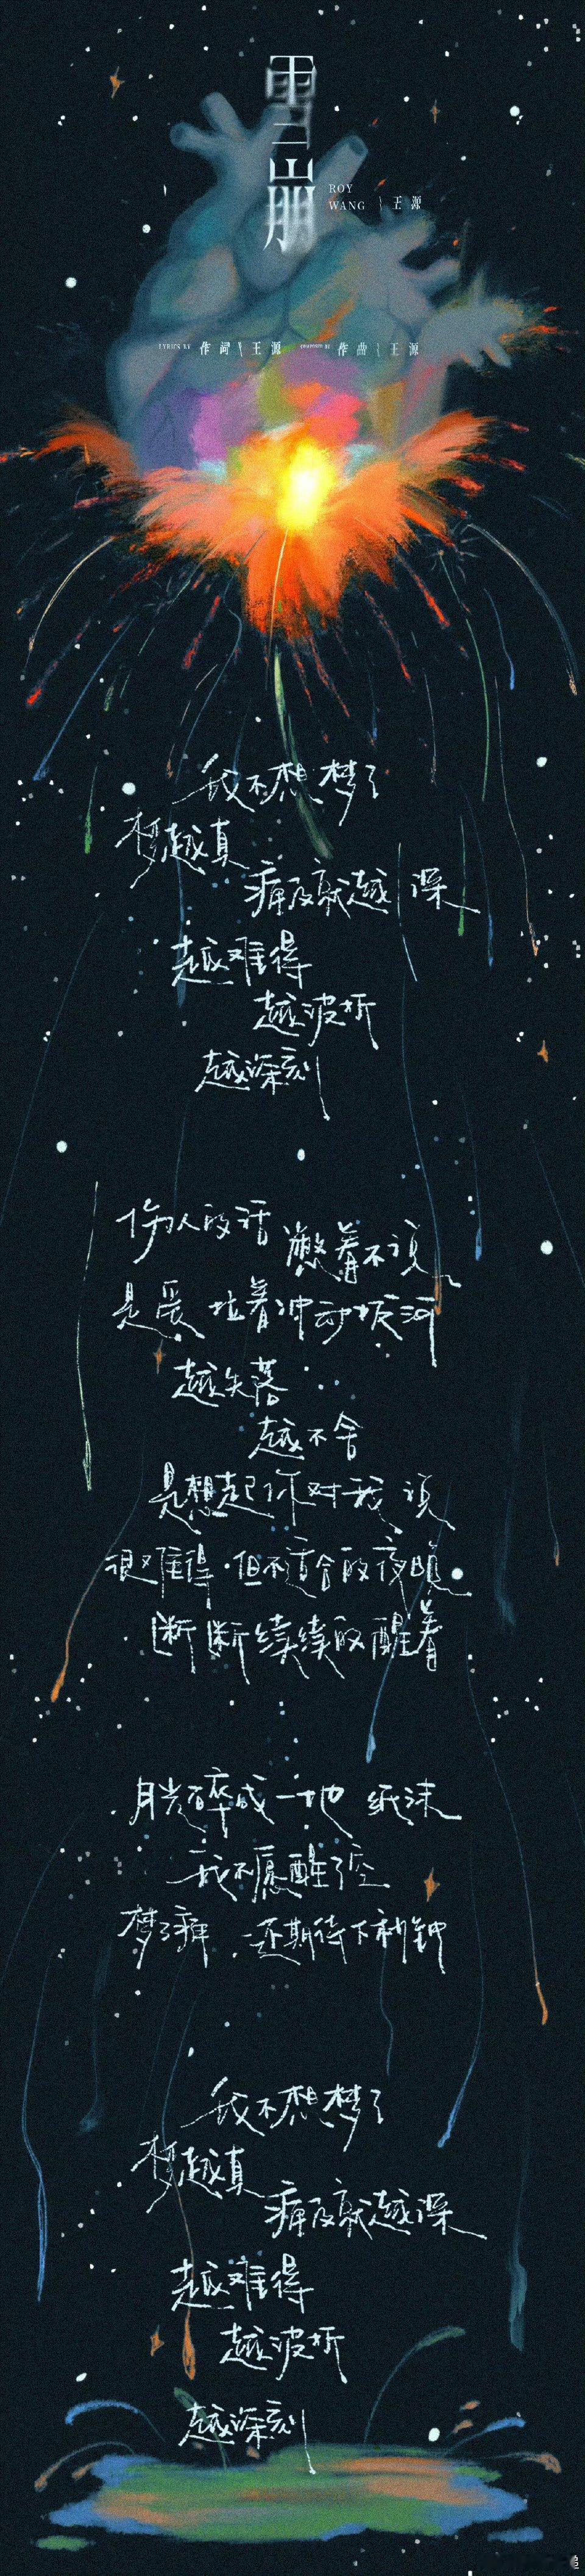 雪崩
ROY
WANG \ 王源
LYRICS BY 作词 \ 王源 COMPOSED BY 作曲 \ 王源
我不想梦了
梦越真
痛及就越深
越难得
越波折
越深刻
伤人的话 憋着不说
是爱 拉着冲动拔河
越失落
越不舍
是想起你对我说
很难得·但不适合的夜晚
断断续续的醒着
月光碎成一地 纸沫
我不愿醒了空
梦了痛，还期待下秒钟
我不想梦了
梦越真
痛及就越深
越难得
越波折
越深刻